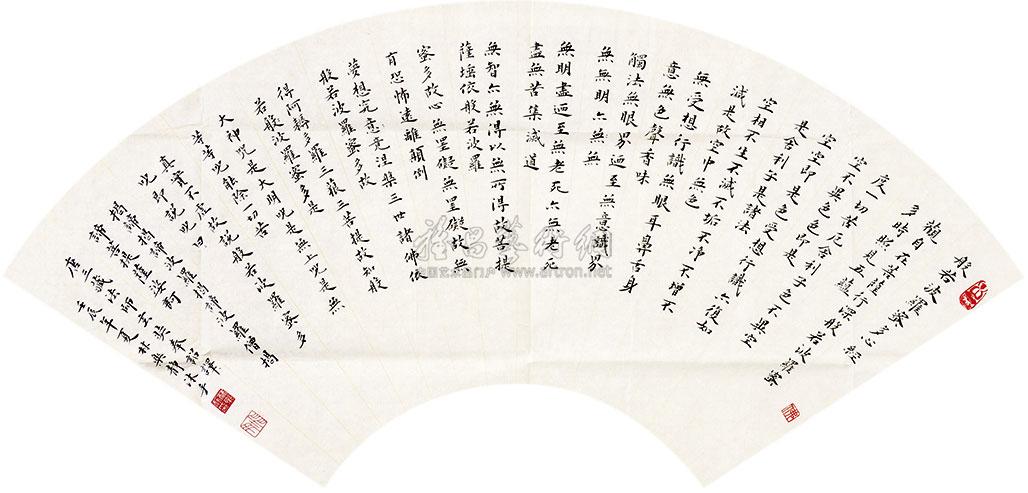 般若波羅蜜多心經
觀自在菩薩行深般若波羅蜜
多時照見五蘊
度一切苦厄舍利子色不異空
空不異色色即是
空空即是色受想行識亦復如
是舍利子是諸法
空相不生不滅不垢不淨不增不
減是故空中無色
無受想行識無眼耳鼻舌身
意無色聲香味
觸法無眼界迺至無意識界
無無明亦無無
無明盡迺至無老死亦無老死
盡無苦集滅道
無智亦無得以無所得故菩提
薩埵依般若波羅
蜜多故心無罣礙無罣礙故無
有恐怖遠離顛倒
夢想究竟涅槃三世諸佛依
般若波羅蜜多故
得阿耨多羅三藐三菩提故知般
若般波羅蜜多是
大神咒是大明咒是無上咒是無
等等咒能除一切苦
真實不虛故說般若波羅蜜多
咒即說咒曰
揭諦揭諦波羅揭諦波羅僧揭
諦菩提薩婆訶
唐三藏法師玄奘奉詔譯
壬辰年夏林樂靜沐手
雅昌藝術網
www.artron.net